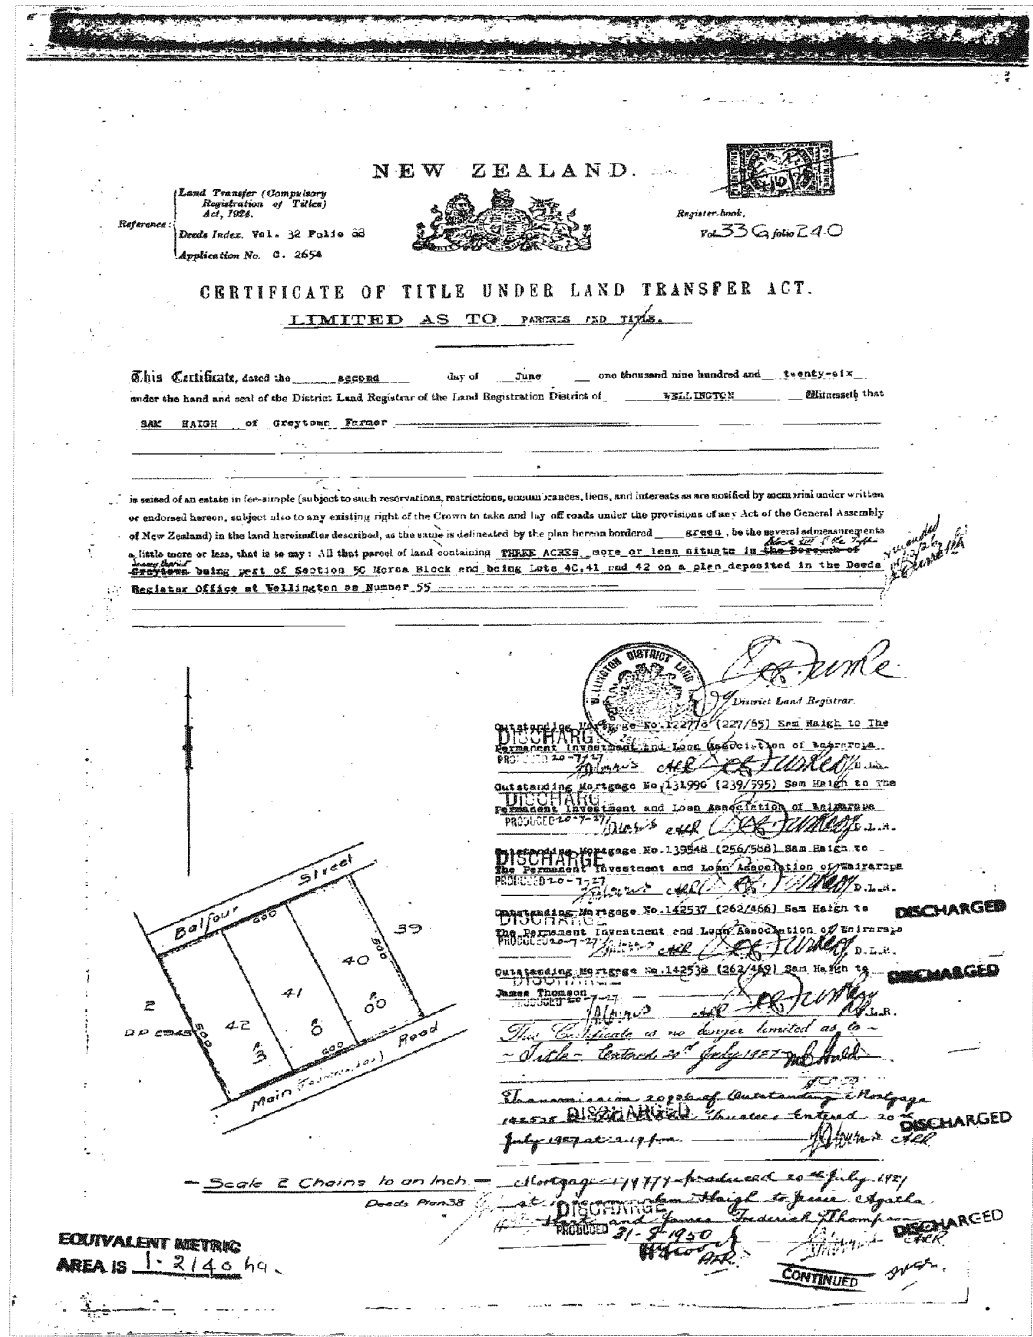 NEW ZEALAND.
Reference:
Land Transfer (Compulsory
Registration of Titles)
Act, 1924.
Deeds Index. Vol. 32 Folio
Application No. C. 2654
Register-book,
Vol. 33G, folio 240
CERTIFICATE OF TITLE UNDER LAND TRANSFER ACT.
LIMITED AS TO PARCELS AND TITLE.
This Certificate, dated the second day of June one thousand nine hundred and twenty-six
under the hand and seal of the District Land Registrar of the Land Registration District of WELLINGTON Witnesseth that
SAM HAIGH of Greytown Farmer
is seised of an estate in fee-simple (subject to such reservations, restrictions, encumbrances, liens, and interests as are notified by memorial under written
or endorsed hereon, subject also to any existing right of the Crown to take and lay off roads under the provisions of any Act of the General Assembly
of New Zealand) in the land hereinafter described, as the same is delineated by the plan hereon bordered green, be the several admeasurements
a little more or less, that is to say: All that parcel of land containing THREE ACRES more or less situate in the Borough of
Greytown being part of Section 50 Moroa Block and being Lots 40,41 and 42 on a plan deposited in the Deeds
Register Office at Wellington as Number 55
WELLINGTON DISTRICT LAND
District Land Registrar.
Outstanding Mortgage No. (227/85) Sam Haigh to The
DISCHARGE
Permanent Investment and Loan Association of Wairarapa
PRODUCED 20-7-27
D.L.R.
Outstanding Mortgage No.131990 (239/595) Sam Haigh to The
DISCHARG
Permanent Investment and Loan Association of Wairarapa
PRODUCED 20-7-27
D.L.R.
Outstanding Mortgage No.139548 (256/588) Sam Haigh to
DISCHARGE
The Permanent Investment and Loan Association of Wairarapa
PRODUCED 20-7-27
D.L.R.
Outstanding Mortgage No.142537 (262/466) Sam Haigh to
DISCHARGE
DISCHARGED
The Permanent Investment and Loan Association of Wairarapa
PRODUCED 20-7-27
D.L.R.
Outstanding Mortgage No.142538 (262/469) Sam Haigh to
DISCHARGE
DISCHARGED
James Thomson
PRODUCED 20-7-27
D.L.R.
This Certificate is no longer limited as to
Title - Entered 20th July 1927
Transmission of Outstanding Mortgage
DISCHARGED
Entered 20th
DISCHARGED
July 1927 at
Mortgage produced 20th July 1927
at Sam Haigh to Jessie Agatha
DISCHARGE
and James Frederick Thompson
PRODUCED 31-8-1950
DISCHARGED
CONTINUED
Balfour Street
600
39
40
41
42
2
500
500
600
Main Road
Scale 2 Chains to an Inch.
Deeds Plan 38
EQUIVALENT METRIC
AREA IS 1.2140 ha.